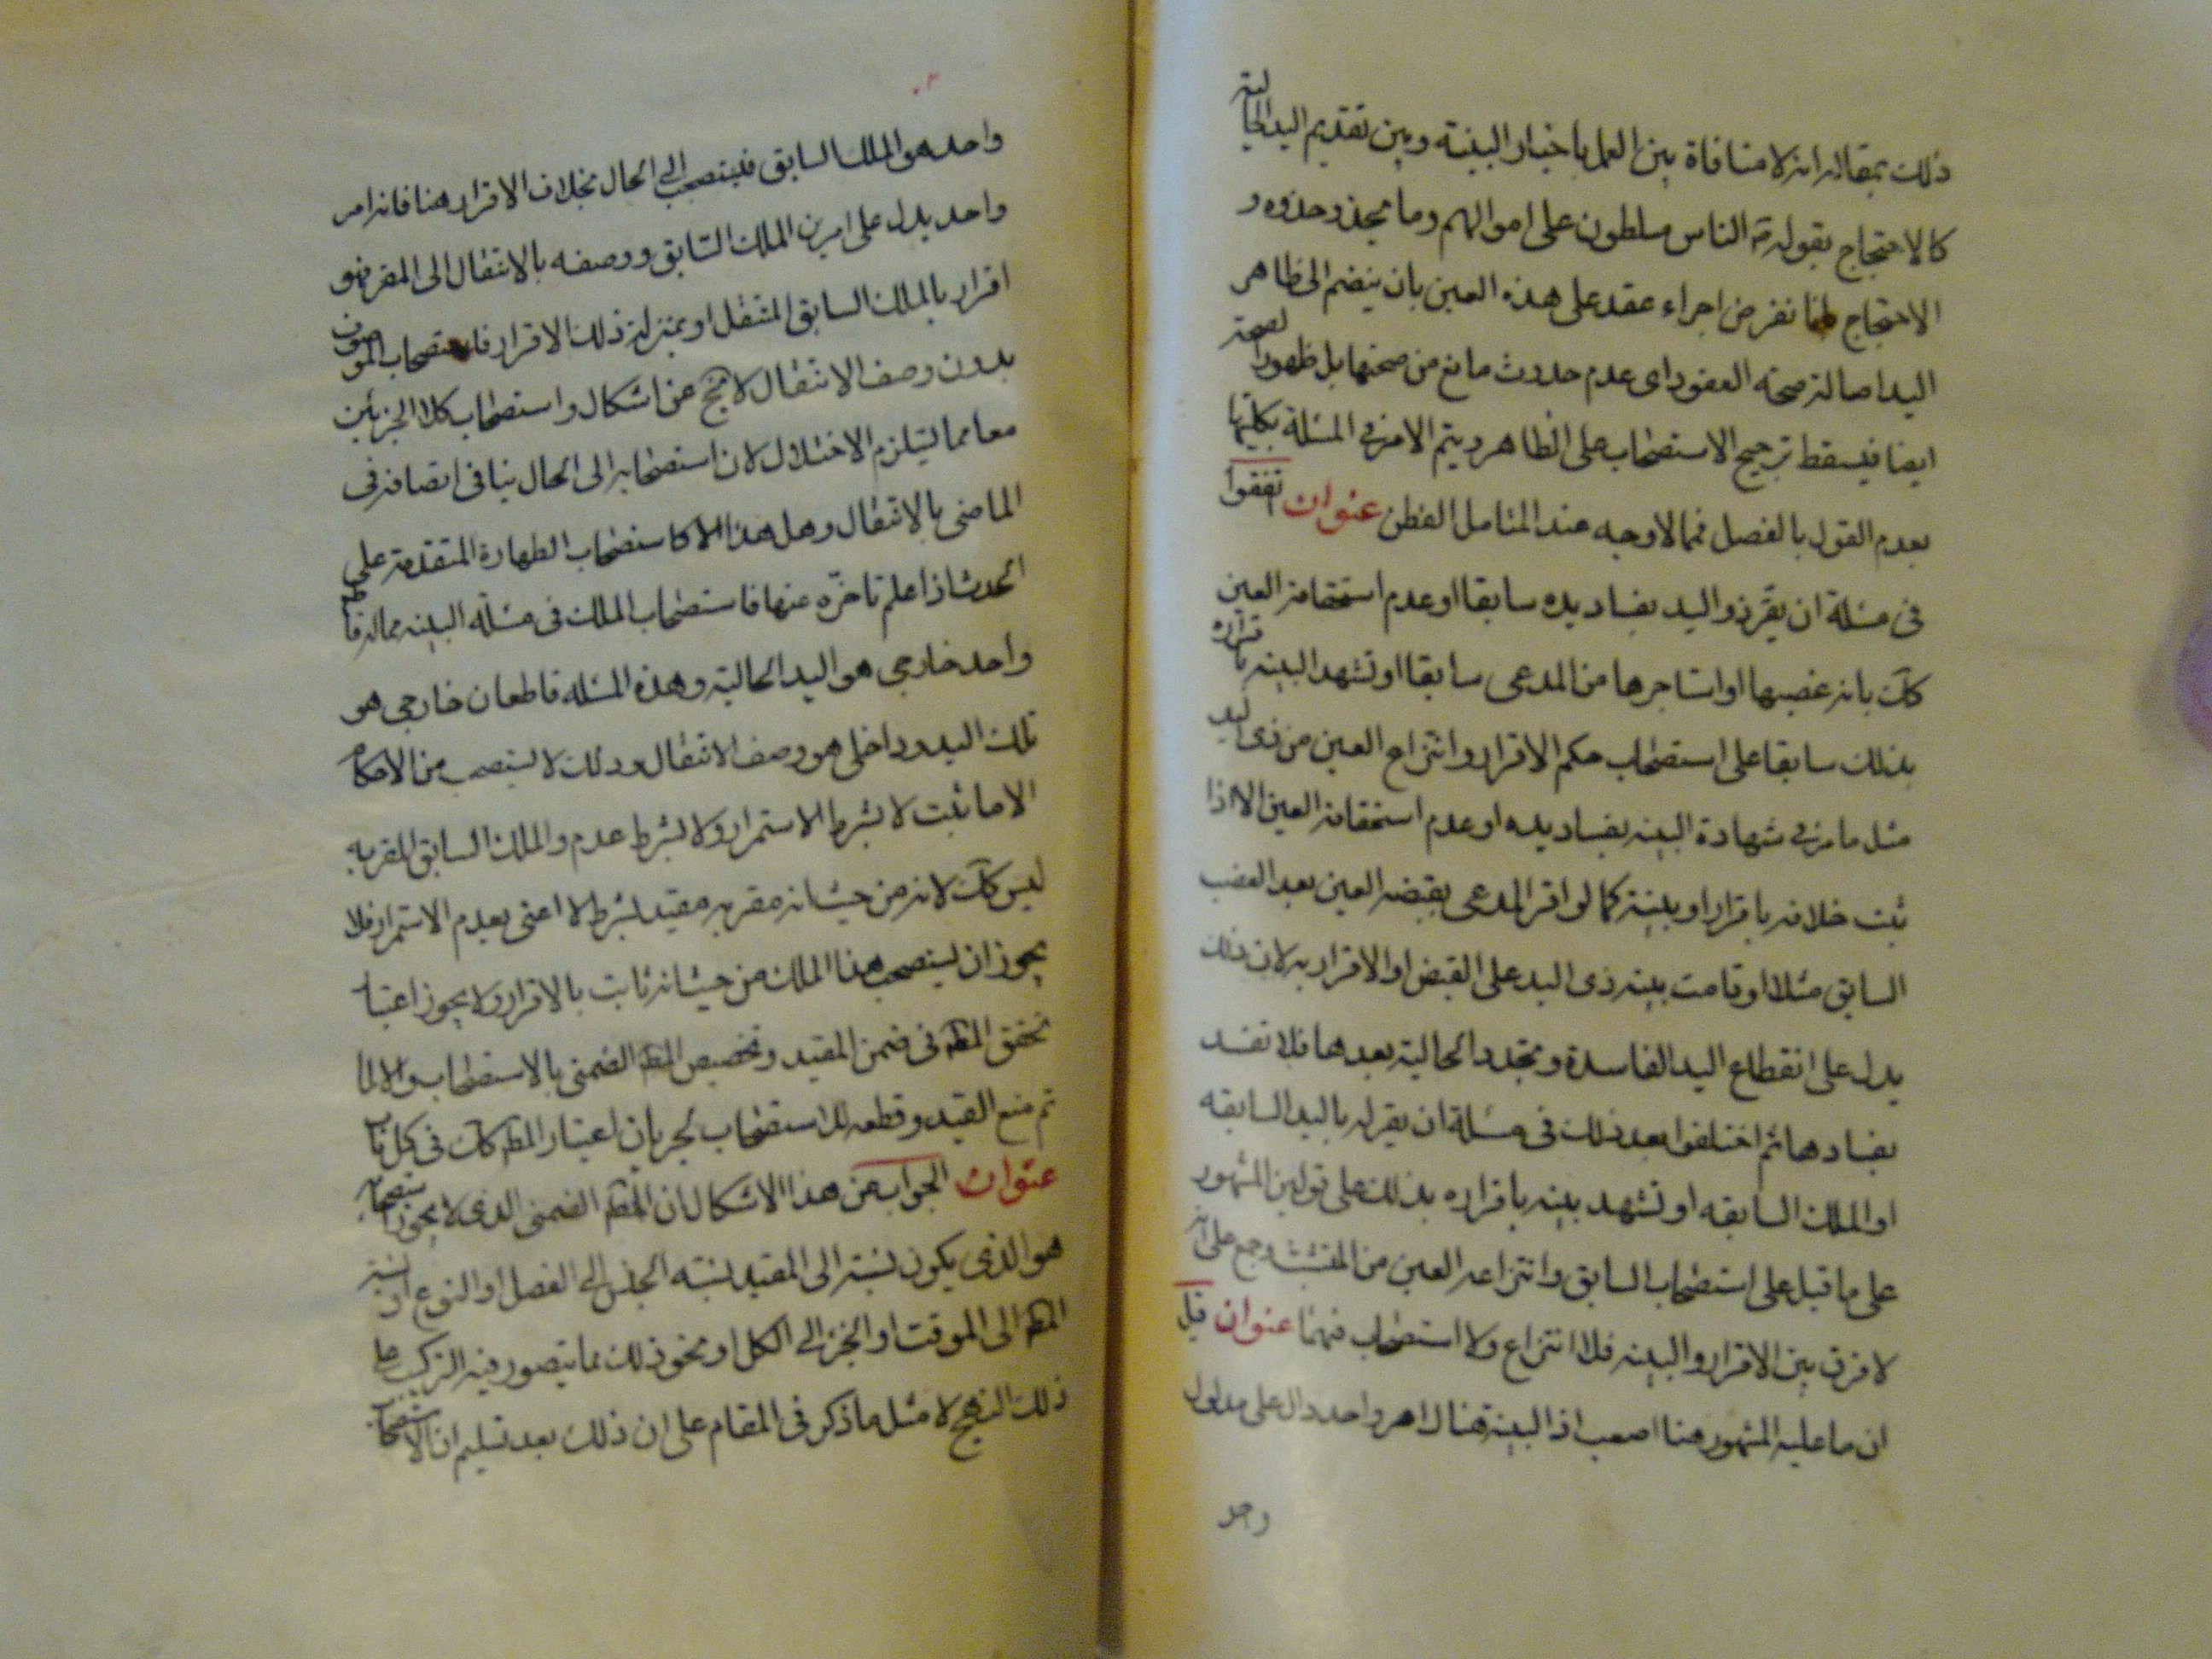 ذلك بمقاله انه لا منافاة بين العمل باخبار البينة وبين تقديم اليد الحالية
كالاحتجاج بقوله الناس مسلطون على اموالهم وما يحذو حذوه و
الاحتجاج نفرض اجراء عقد على هذه العين بان ينضم الى ظاهر
اليد اصالة صحة العقود اى عدم حدوث مانع من صحتها بل ظهور الصحة
ايضا فيسقط ترجيح الاستصحاب على الظاهر ويتم الامر فى المسئلة بكليتها
بعدم القول بالفصل فما لا وجه عند المتامل الفطن عنوان اتفقوا
فى مسئلة ان يقر ذو اليد بفساد يده سابقا او عدم استحقاقه العين
كك بانه غصبها او استاجرها من المدعى سابقا او تشهد البينه باقراره
بذلك سابقا على استصحاب حكم الاقرار وانتزاع العين من ذى اليد
مثل ما مر فى شهادة البينه بفساد يده او عدم استحقاقه العين الا اذا
ثبت خلافه باقرار او بينة كما لو اقر المدعى بقبضه العين بعد الغصب
السابق مثلا او قامت بينه ذى اليد على القبض او الاقرار به لان ذلك
يدل على انقطاع اليد الفاسدة وتجدد الحالية بعدها فلا تفسد
بفسادها ثم اختلفوا بعد ذلك فى مسئلة ان يقر له باليد السابقه
او الملك السابقه او تشهد بينه باقراره بذلك على قولين المشهور
على ما قيل على استصحاب السابق وانتزاعه العين من وجمع على انه
لا فرق بين الاقرار والبينه فلا انتزاع ولا استصحاب فيهما عنوان قيل
ان ما عليه المشهور هنا اصعب اذ البينة هناك امر واحد دال على مدلول
واحد هو الملك السابق فيستصحب الى الحال بخلاف الاقرار هنا فانه امر
واحد يدل على امرين الملك السابق ووصفه بالانتقال الى المقر فهو
اقرار بالملك السابق المنتقل او بمنزلة ذلك الاقرار فاستصحاب الموصوف
بدون وصف الانتقال لا يخ عن اشكال واستصحاب كلا الجزئين
معا مما يستلزم الاختلال لان استصحابه الى الحال ينافى اتصافه فى
الماضى بالانتقال وهل هذا الا كاستصحاب الطهارة المتقدمة على
الحدث اذا علم تاخره عنها فاستصحاب الملك فى مسئلة البينه مما له قاطع
واحد خارجى هو اليد الحالية وهذه المسئله قاطعان خارجى هو
تلك اليد وداخلى هو وصف الانتقال وذلك لا يستصحب من الاحكام
الا ما ثبت لا بشرط الاستمرار ولا بشرط عدمه والملك السابق المقر به
ليس كك لانه من حيث انه مقر به مقيد بشرط لا اعنى بعدم الاستمرار فلا
يجوز ان يستصحب هذا الملك من حيث انه ثابت بالاقرار ولا يجوز اعتبار
تحقق المطم فى ضمن المقيد وتخصيص المطم الضمنى بالاستصحاب والا لما
تم منع القيد وقطعه للاستصحاب لجريان اعتبار المطم كك فى كل باب
عنوان الجواب عن هذا الاشكال ان المطم الضمنى الذى لا يجوز استصحابه
هو الذى يكون نسبته الى المقيد نسبته الجنس الى الفصل او النوع او نسبة
المطم الى الموقت او الجزء الى الكل او نحو ذلك مما يتصور فيه التركيب على
ذلك النهج لا مثل ما ذكر فى المقام على ان ذلك بعد تسليم ان الاستصحاب